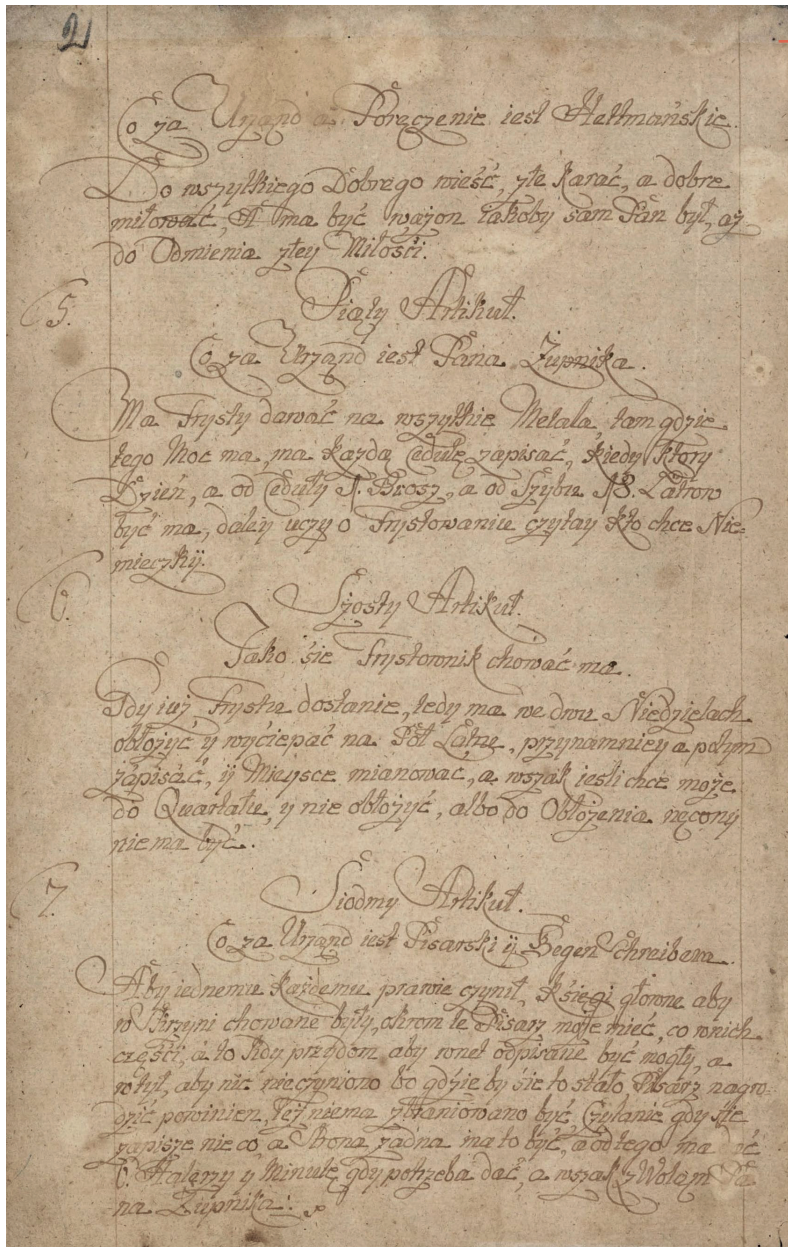 2
Co za Urząnd a Poręczenie iest Hettmańskie.
Do wszytkiego Dobrego wieść, złe karać, a dobre
miłować, A ma byćważon iakoby sam Pan był, aż
do Odmienia złey Miłości.
5. Piąty Artikuł.
Co za Urząnd iest Pana Zupnika.
Ma Frysty dawać na wszytkie Metala, tam gdzie
tego Moc ma, ma każdą Cedułę zapisać, kiedy który
Dzień, a od Ceduły 1. Grosz, a od Szybu 18. Łatrow
być ma, daley uczy o Frystowaniu czytay kto chce Nie=
mieczkÿ.
6. Szosty Artikuł.
Jako sie Frystownik chować ma.
Gdy iuż Frystu dostanie, tedy ma we dwu Niedzielach
obłożyć y wyciepać na Poł Łatru, przynamniey a potym
zapisać, ÿ Mieysce mianować, a wszak iesli chce może
do Quartału, y nie obłożyć, albo do Obłożenia nęcony
nie ma być.
7. Siodmy Artikuł.
Co za Urząnd iest Pisarski ÿ Gegen Schreibera.
Aby iednemu każdemu prawie czynił, księgi głowne aby
w Skrzyni chowane były, okrom te Pisarz może mieć, co wnich
części, a to kdy przydom, aby wnet odpisane być mogły, a
wtył, aby nic nieczyniono bo gdzie by sie to stało Pisarz nagro=
dzić powinien, Też niema zbraniowano być Czytanie gdy sie
zapisze nieco a Strona żadna ma to być, a od tego ma dać
6 Halerzy y Minutę gdy potrzeba dać, a wszak z Wolą Pa
na Zupnika.